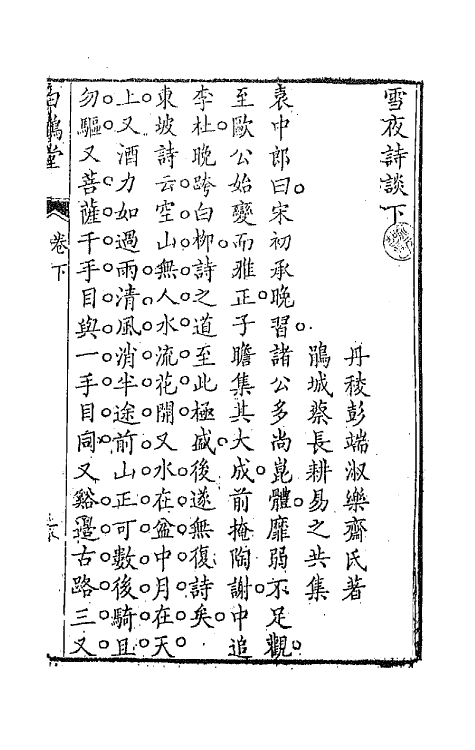 雪夜詩談下
丹稜彭端淑樂齋氏著
鵑城蔡長耕易之共集
袁中郎曰宋初承晚習諸公多尚崑體靡弱不足觀
至歐公始變而雅正子瞻集其大成前掩陶謝中追
李杜晚跨白柳詩之道至此極盛後遂無復詩矣
東坡詩云空山無人水流花開又水在盆中月在天
上又酒力如過雨清風消半途前山正可數後騎且
勿驅又菩薩千手目與一手目同又谿邊古路三叉
白鶴堂
卷下